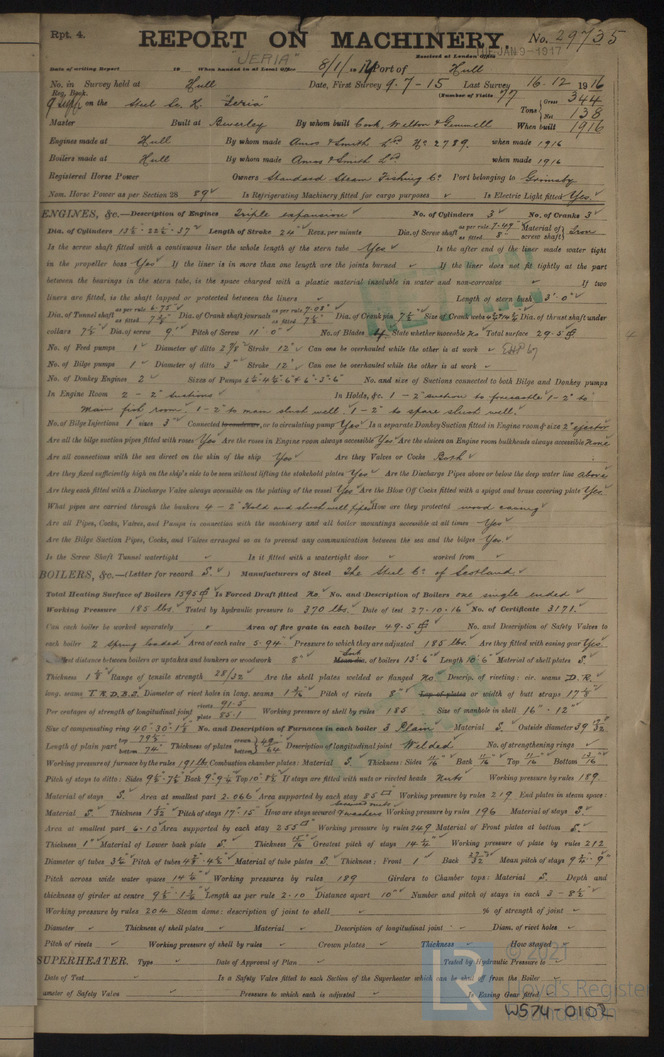 Rpt. 4.
REPORT ON MACHINERY.
No. 29735
"JERIA"
Received at London Office TUE. JAN 9-1917
Date of writing Report 19 When handed in at Local Office 8/1/1917 Port of Hull
No. in Survey held at Hull Date, First Survey 9-7-15 Last Survey 16-12-1916
Reg. Book. (Number of Visits 77
on the Steel Sc K. "Jeria" Tons Gross 344 Net 138
Master Built at Beverley By whom built Cook, Welton & Gemmell When built 1916
Engines made at Hull By whom made Amos & Smith Ld No 2789. when made 1916
Boilers made at Hull By whom made Amos & Smith Ld when made 1916
Registered Horse Power Owners Standard Steam Fishing Co Port belonging to Grimsby
Nom. Horse Power as per Section 28 89 Is Refrigerating Machinery fitted for cargo purposes Is Electric Light fitted Yes
ENGINES, &c.—Description of Engines Triple expansion No. of Cylinders 3 No. of Cranks 3
Dia. of Cylinders 13½-22½-37 Length of Stroke 24" Revs. per minute Dia. of Screw shaft as per rule 7.49 as fitted 8" Material of screw shaft Iron
Is the screw shaft fitted with a continuous liner the whole length of the stern tube Yes Is the after end of the liner made water tight
in the propeller boss Yes If the liner is in more than one length are the joints burned If the liner does not fit tightly at the part
between the bearings in the stern tube, is the space charged with a plastic material insoluble in water and non-corrosive If two
liners are fitted, is the shaft lapped or protected between the liners Length of stern bush 3' 0"
Dia. of Tunnel shaft as per rule 6.75 as fitted Dia. of Crank shaft journals as per rule 7.08" as fitted 7½" Dia. of Crank pin 7½" Size of Crank webs Dia. of thrust shaft under
collars 7½" Dia. of screw 9' Pitch of Screw 11' 0" No. of Blades 4 State whether moveable No Total surface 29.5
No. of Feed pumps 1 Diameter of ditto 2⅞ Stroke 12" Can one be overhauled while the other is at work
No. of Bilge pumps 1 Diameter of ditto 3" Stroke 12" Can one be overhauled while the other is at work
No. of Donkey Engines 2 Sizes of Pumps No. and size of Suctions connected to both Bilge and Donkey pumps
In Engine Room 2 - 2" suctions In Holds, &c. 1 - 2" suction to forecastle 1-2" to
Main fish room. 1-2" to main slush well. 1-2" to spare slush well.
No. of Bilge Injections 1 sizes 3" Connected to condenser, or to circulating pump Yes Is a separate Donkey Suction fitted in Engine room & size 2" ejector
Are all the bilge suction pipes fitted with roses Yes Are the roses in Engine room always accessible Yes Are the sluices on Engine room bulkheads always accessible None
Are all connections with the sea direct on the skin of the ship Yes Are they Valves or Cocks Both
Are they fixed sufficiently high on the ship's side to be seen without lifting the stokehold plates Yes Are the Discharge Pipes above or below the deep water line Above
Are they each fitted with a Discharge Valve always accessible on the plating of the vessel Yes Are the Blow Off Cocks fitted with a spigot and brass covering plate Yes
What pipes are carried through the bunkers 4-2" Hold and slush well pipes How are they protected wood casing
Are all Pipes, Cocks, Valves, and Pumps in connection with the machinery and all boiler mountings accessible at all times Yes
Are the Bilge Suction Pipes, Cocks, and Valves arranged so as to prevent any communication between the sea and the bilges Yes
Is the Screw Shaft Tunnel watertight Is it fitted with a watertight door worked from
BOILERS, &c.—(Letter for record S.) Manufacturers of Steel The Steel Co. of Scotland.
Total Heating Surface of Boilers 1595 Is Forced Draft fitted No No. and Description of Boilers one single ended
Working Pressure 185 lbs Tested by hydraulic pressure to 370 lbs. Date of test 27-10-16 No. of Certificate 3171.
Can each boiler be worked separately Area of fire grate in each boiler 49.5 No. and Description of Safety Valves to
each boiler 2 Spring loaded Area of each valve 5.94 Pressure to which they are adjusted 185 lbs Are they fitted with easing gear Yes
distance between boilers or uptakes and bunkers or woodwork 8" Mean dia. of boilers 13' 6" Length 10' 6" Material of shell plates S.
Thickness Range of tensile strength 28/32 Are the shell plates welded or flanged No Descrip. of riveting: cir. seams D.R.
long. seams T.R.D.B.S. Diameter of rivet holes in long. seams Pitch of rivets 8" Lap of plates or width of butt straps
Per centages of strength of longitudinal joint rivets 91.5 plate 85.1 Working pressure of shell by rules 185 Size of manhole in shell 16" - 12"
Size of compensating ring No. and Description of Furnaces in each boiler 3 Plain Material S. Outside diameter
Length of plain part top bottom 74" Thickness of plates crown bottom Description of longitudinal joint Welded No. of strengthening rings
Working pressure of furnace by the rules 191 lbs Combustion chamber plates: Material S. Thickness: Sides Back Top Bottom
Pitch of stays to ditto: Sides Back Top If stays are fitted with nuts or riveted heads Nuts Working pressure by rules 189.
Material of stays S. Area at smallest part 2.066 Area supported by each stay 85 Working pressure by rules 219 End plates in steam space:
Material S. Thickness Pitch of stays 17"-15" How are stays secured Working pressure by rules 196 Material of stays S.
Area at smallest part 6.10 Area supported by each stay 255 Working pressure by rules 249 Material of Front plates at bottom S.
Thickness 1" Material of Lower back plate S. Thickness Greatest pitch of stays Working pressure of plate by rules 212
Diameter of tubes 3½ Pitch of tubes Material of tube plates S. Thickness: Front 1 Back Mean pitch of stays
Pitch across wide water spaces Working pressures by rules 189 Girders to Chamber tops: Material S. Depth and
thickness of girder at centre Length as per rule 2.10 Distance apart 10" Number and pitch of stays in each 3 - 8½"
Working pressure by rules 204 Steam dome: description of joint to shell % of strength of joint
Diameter Thickness of shell plates Material Description of longitudinal joint Diam. of rivet holes
Pitch of rivets Working pressure of shell by rules Crown plates Thickness How stayed
SUPERHEATER. Type Date of Approval of Plan Tested by Hydraulic Pressure to
Date of Test Is a Safety Valve fitted to each Section of the Superheater which can be shut off from the Boiler
ameter of Safety Valve Pressure to which each is adjusted Is Easing Gear fitted
© 2021
LR
Lloyd's Register
Foundation
W574-0102